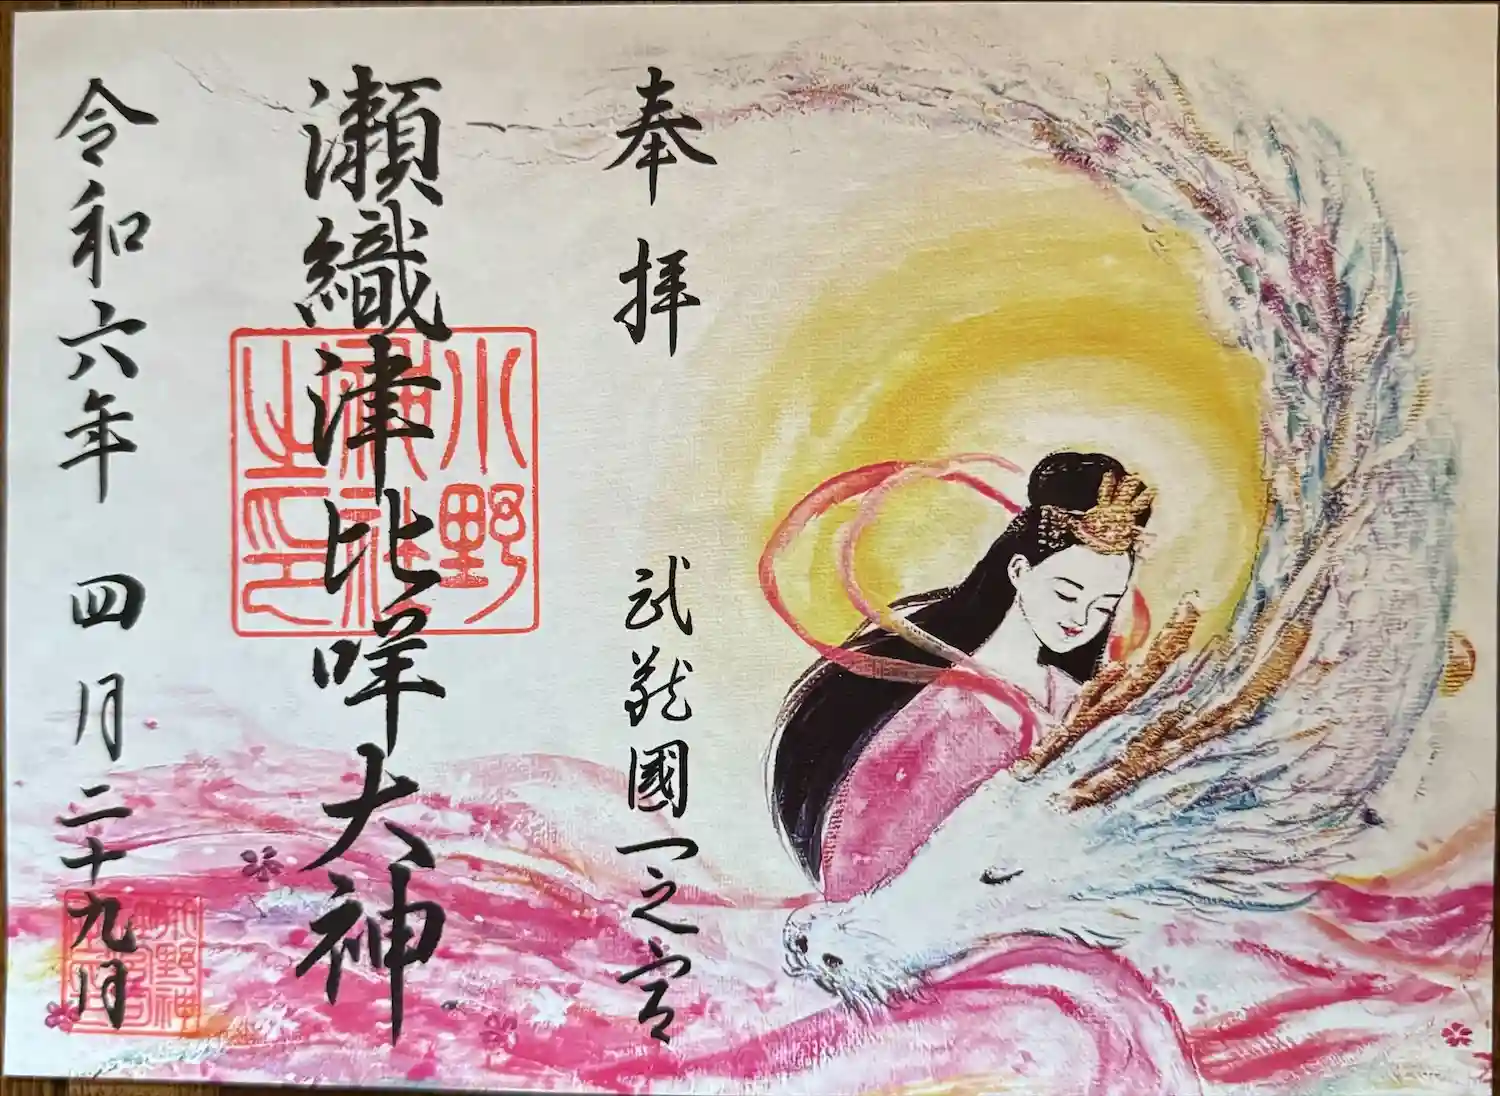 奉拝
武蔵國一之宮
瀨織津比咩大神
小野神社之印
令和六年 四月二十九日